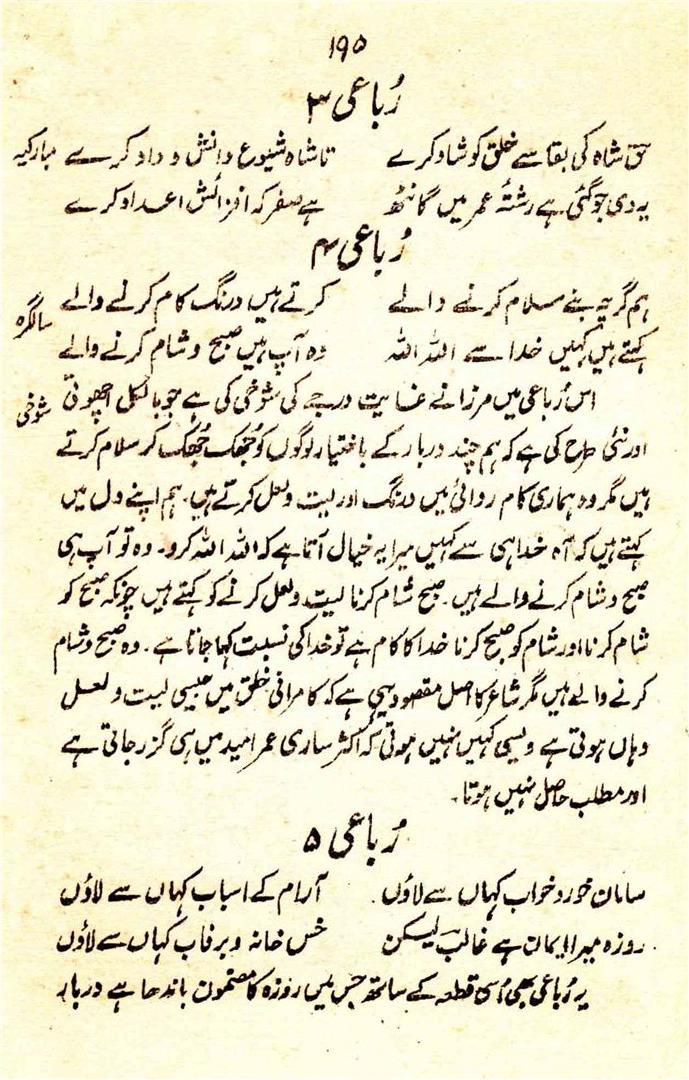 ۱۹۵
رُباعی ۳
حق شاہ کی بقا سے خلق کو شاد کرے تا شاہ شیوع دانش و داد کرے مبارکیہ
یہ دی جو گئی ہے رشتۂ عمر میں گانٹھ ہے صفر کہ افزائش اعداد کرے
رُباعی ۴
ہم گرچہ بنے سلام کرنے والے کرتے ہیں درنگ کام کرنے والے سالگرہ
کہتے ہیں کہیں خدا سے اللہ اللہ وہ آپ ہیں صبح و شام کرنے والے
اس رُباعی میں مرزا نے غایت درجے کی شوخی کی ہے جو بالکل اچھوتی شوخی
اور نئی طرح کی ہے کہ ہم چند دربار کے باختیار لوگوں کو جُھک جُھک کر سلام کرتے
ہیں مگر وہ ہماری کام روائی میں درنگ اور لیت و لعل کرتے ہیں۔ ہم اپنے دل میں
کہتے ہیں کہ آہ خدا ہی سے کہیں میرا یہ خیال آتا ہے کہ اللہ اللہ کرو۔ وہ تو آپ ہی
صبح و شام کرنے والے ہیں۔ صبح شام کرنا لیت و لعل کرنے کو کہتے ہیں چونکہ صبح کو
شام کرنا اور شام کو صبح کرنا خدا کا کام ہے تو خدا کی نسبت کہا جاتا ہے۔ وہ صبح و شام
کرنے والے ہیں مگر شاعر کا اصل مقصود یہی ہے کہ کامرانی خلق میں جیسی لیت و لعل
وہاں ہوتی ہے ویسی کہیں نہیں ہوتی کہ اکثر ساری عمر امید میں ہی گزر جاتی ہے
اور مطلب حاصل نہیں ہوتا۔
رُباعی ۵
سامان خور و خواب کہاں سے لاؤں آرام کے اسباب کہاں سے لاؤں
روزہ میرا ایمان ہے غالبؔ لیکن خس خانہ و برفاب کہاں سے لاؤں
یہ رُباعی بھی اُسی قطعہ کے ساتھ جس میں روزہ کا مضمون باندھا ہے دربار